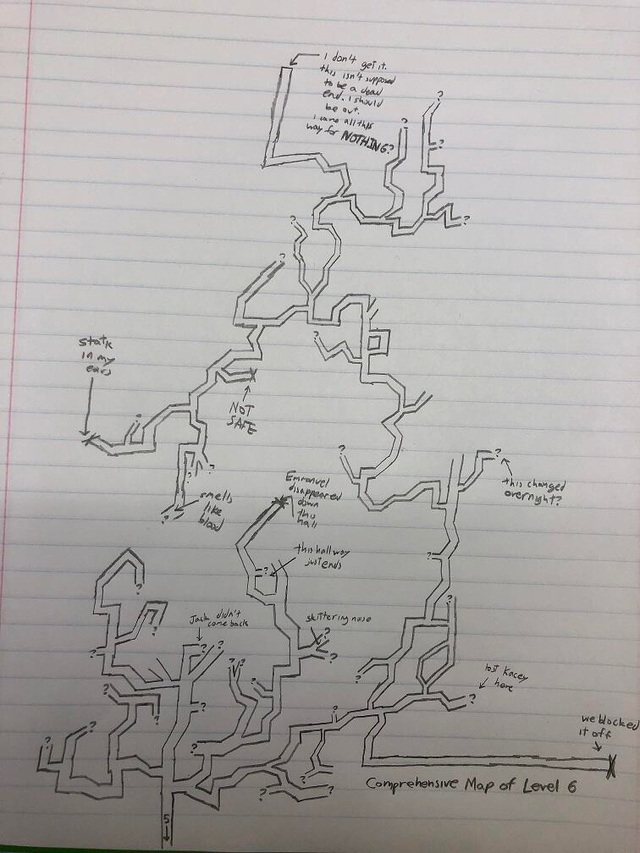 I don't get it.
this isn't supposed
to be a dead
end. I should
be out.
i came all this
way for NOTHING?
?
?
?
?
?
?
?
static
in my
ears
?
?
NOT
SAFE
?
?
?
smells
like
blood
?
?
this changed
overnight?
Emmanuel
disappeared
down
this
hall
this hallway
just ends
?
?
?
?
?
?
Jack didn't
come back
?
?
skittering noise
?
?
?
?
lost Kacey
here
?
?
?
?
?
?
?
?
?
?
we blocked
it off
?
?
?
?
?
Comprehensive Map of Level 6
5